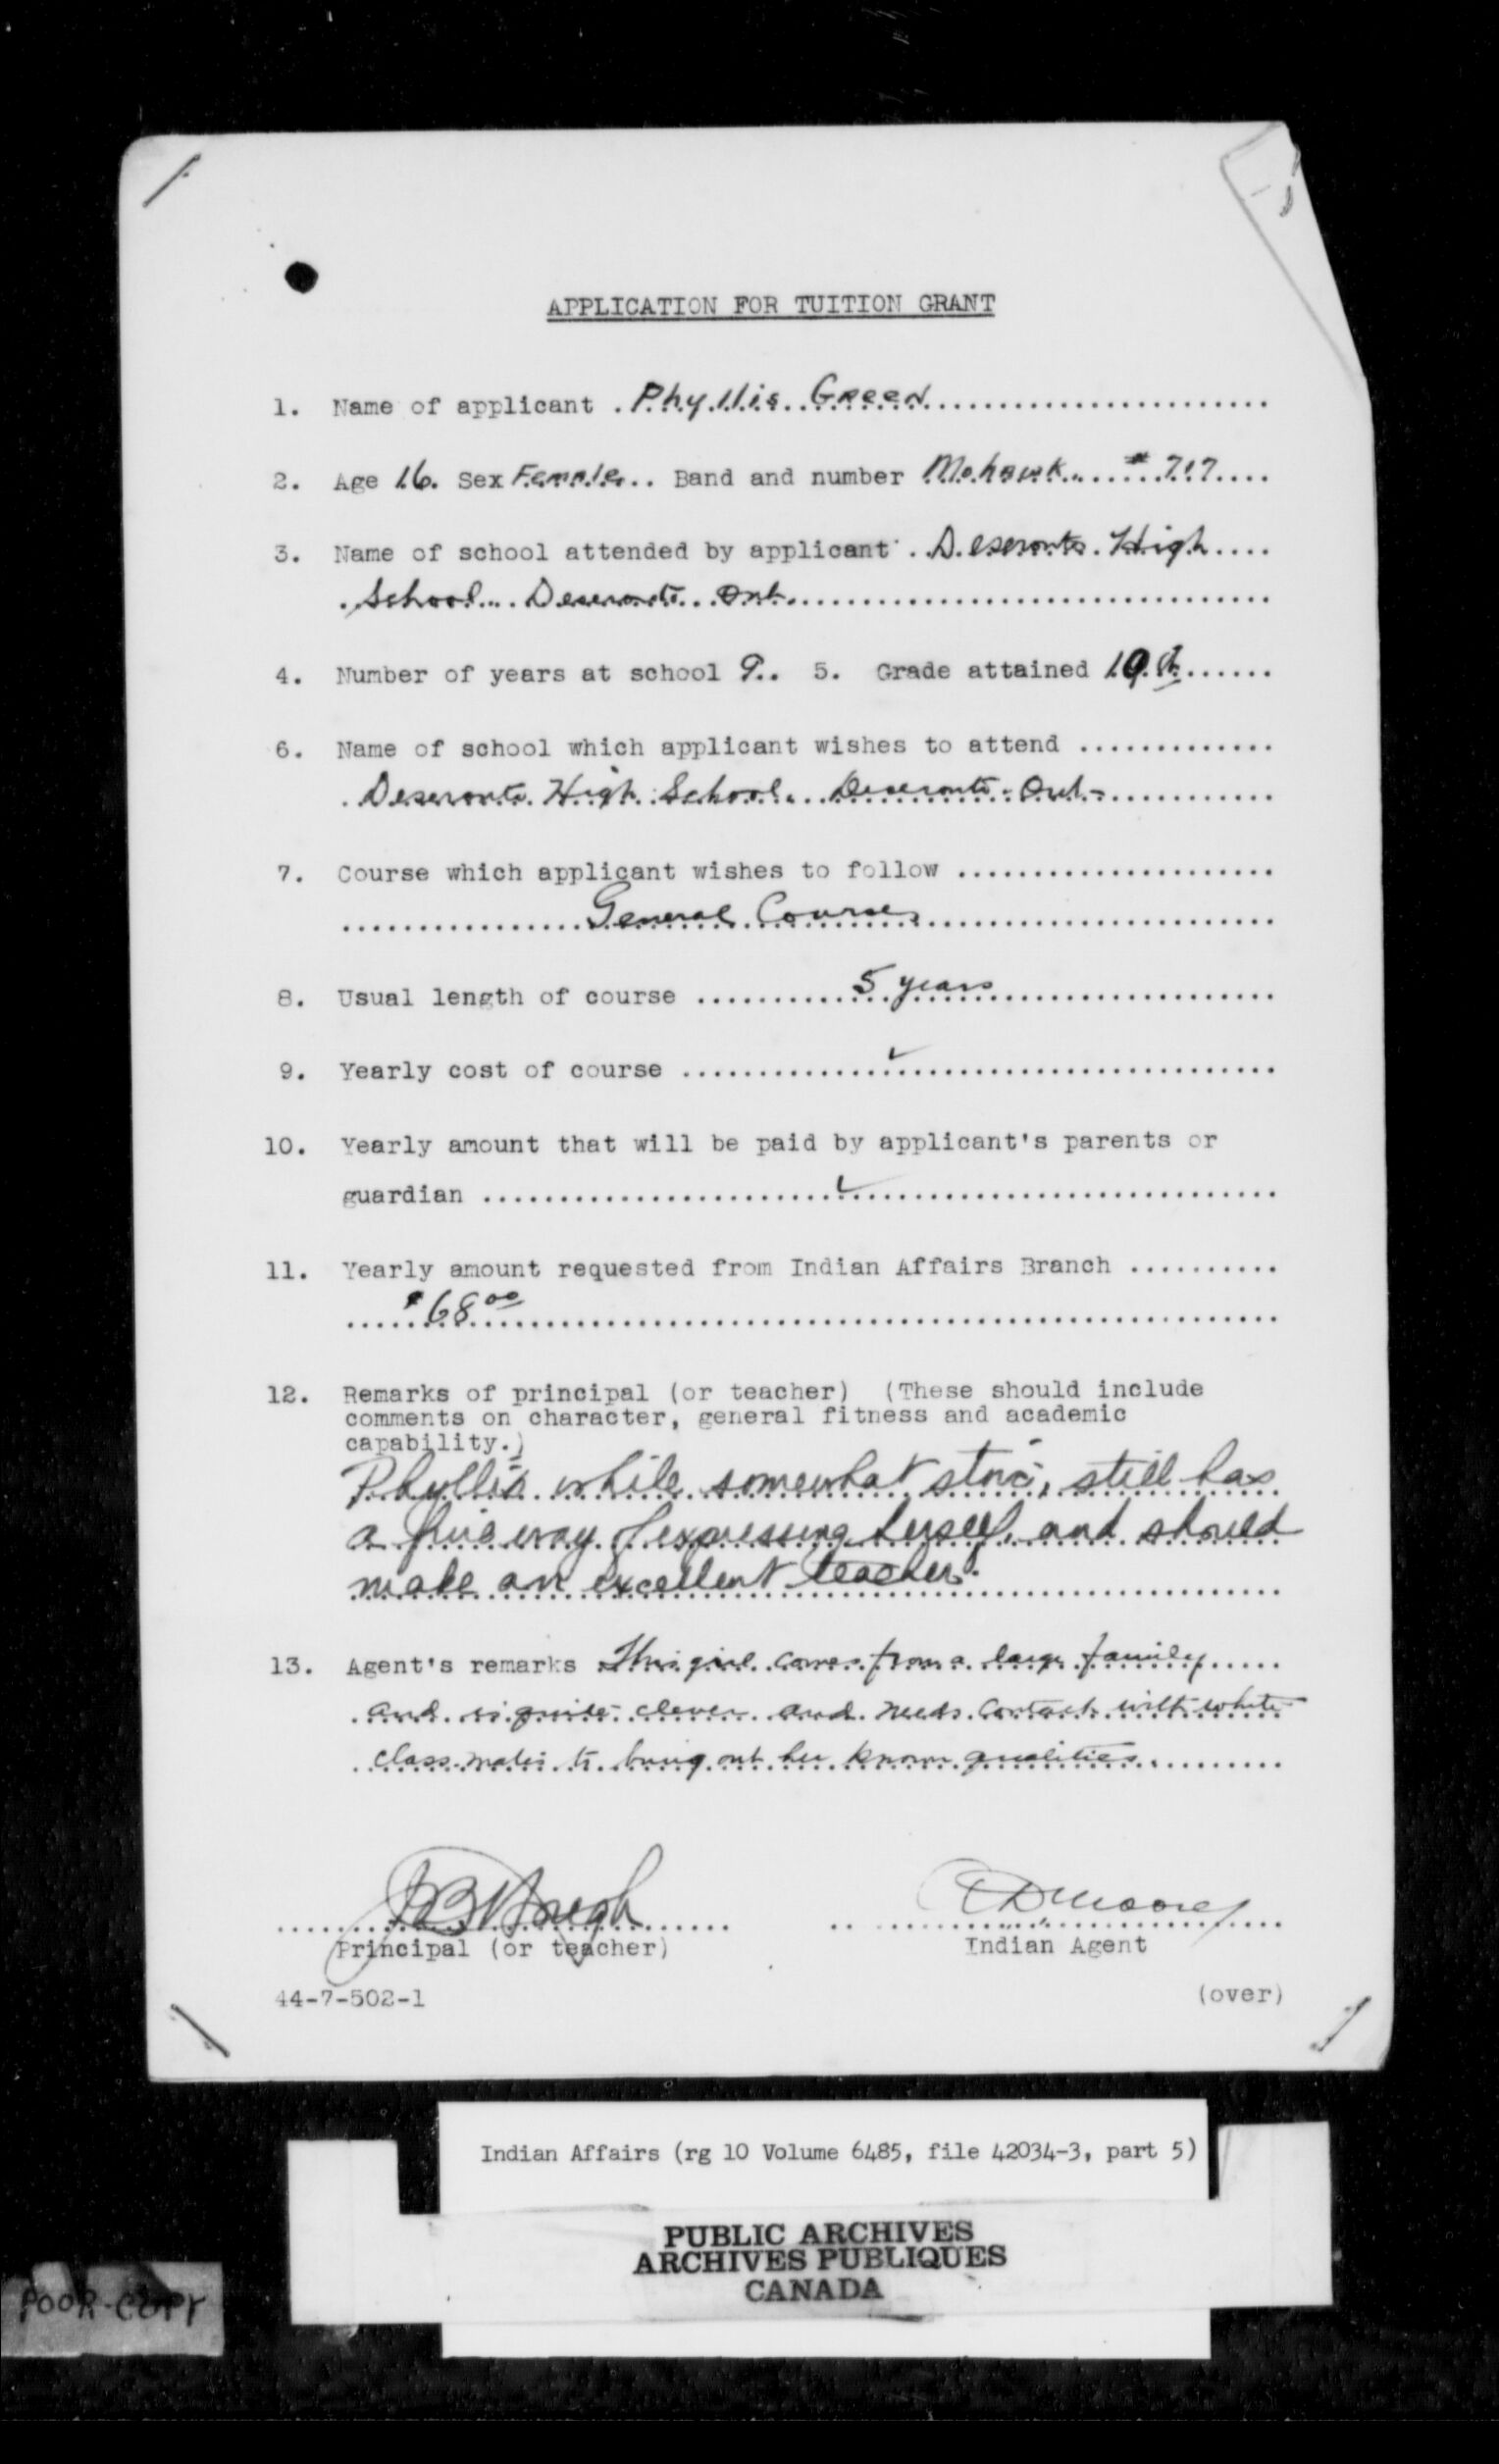 APPLICATION FOR TUITION GRANT
1. Name of applicant . Phyllis Green
2. Age 16. Sex Female... Band and number Mohawk # 717
3. Name of school attended by applicant . Deseronto High
School Deseronto Ont
4. Number of years at school 9.. 5. Grade attained 10th
6. Name of school which applicant wishes to attend
Deseronto High School Deseronto Ont-
7. Course which applicant wishes to follow
General Course
8. Usual length of course 5 years
9. Yearly cost of course ✓
10. Yearly amount that will be paid by applicant's parents or
guardian ✓
11. Yearly amount requested from Indian Affairs Branch
$68.00
12. Remarks of principal (or teacher) (These should include
comments on character, general fitness and academic
capability.)
Phyllis while somewhat stoic, still has
a fine way of expressing herself, and should
make an excellent teacher.
13. Agent's remarks This girl comes from a large family
and is quite clever and needs contact with white
class mates to bring out her known qualities
Principal (or teacher)
Indian Agent
44-7-502-1
(over)
Indian Affairs (rg 10 Volume 6485, file 42034-3, part 5)
PUBLIC ARCHIVES
ARCHIVES PUBLIQUES
CANADA
POOR COPY